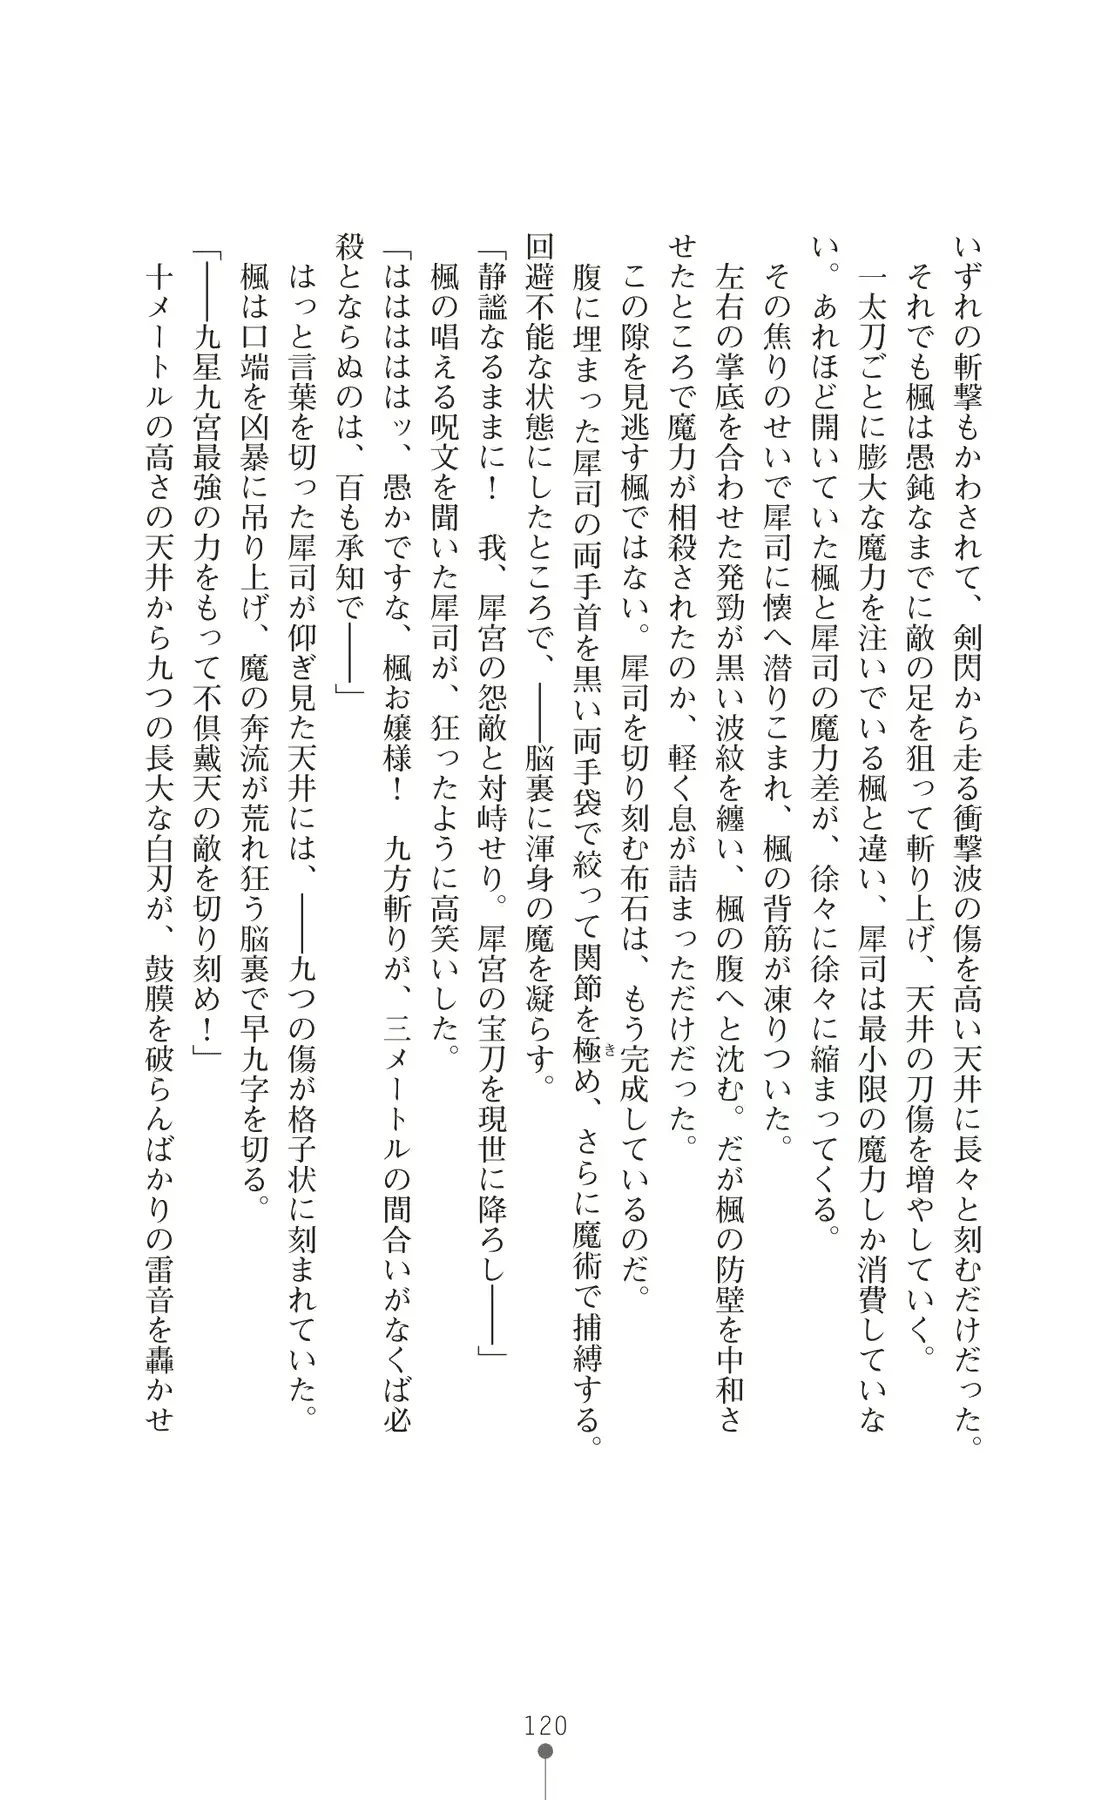 いずれの斬撃もかわされて、剣閃から走る衝撃波の傷を高い天井に長々と刻むだけだった。
それでも楓は愚鈍なまでに敵の足を狙って斬り上げ、天井の刀傷を増やしていく。
一太刀ごとに膨大な魔力を注いでいる楓と違い、犀司は最小限の魔力しか消費していな
い。あれほど開いていた楓と犀司の魔力差が、徐々に徐々に縮まってくる。
その焦りのせいで犀司に懐へ潜りこまれ、楓の背筋が凍りついた。
左右の掌底を合わせた発勁が黒い波紋を纏い、楓の腹へと沈む。だが楓の防壁を中和さ
せたところで魔力が相殺されたのか、軽く息が詰まっただけだった。
この隙を見逃す楓ではない。犀司を切り刻む布石は、もう完成しているのだ。
腹に埋まった犀司の両手首を黒い両手袋で絞って関節を極め、さらに魔術で捕縛する。
回避不能な状態にしたところで、――脳裏に渾身の魔を凝らす。
「静謐なるままに！　我、犀宮の怨敵と対峙せり。犀宮の宝刀を現世に降ろし――」
楓の唱える呪文を聞いた犀司が、狂ったように高笑いした。
「はははははッ、愚かですな、楓お嬢様！　九方斬りが、三メートルの間合いがなくば必
殺とならぬのは、百も承知で――」
はっと言葉を切った犀司が仰ぎ見た天井には、――九つの傷が格子状に刻まれていた。
楓は口端を凶暴に吊り上げ、魔の奔流が荒れ狂う脳裏で早九字を切る。
「――九星九宮最強の力をもって不倶戴天の敵を切り刻め！」
十メートルの高さの天井から九つの長大な白刃が、鼓膜を破らんばかりの雷音を轟かせ
き
120